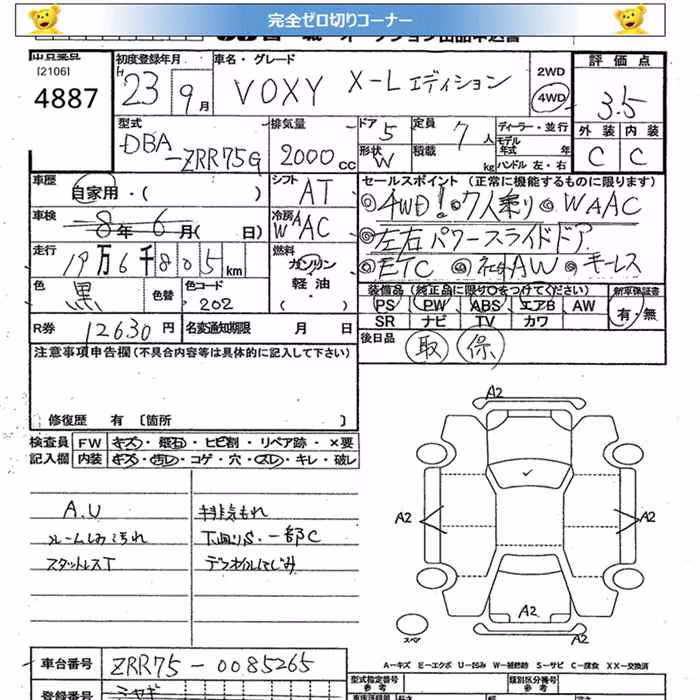 完全ゼロ切りコーナー
[2106]
4887
初度登録年月
H 23 9月
車名・グレード
VOXY X-Lエディション
2WD
4WD
評価点
3.5
外装 内装
C C
型式
DBA
-ZRR75G
排気量
2000cc
ドア 5
形状 W
定員 7人
積載 kg
ディーラー・並行
モデル年式 年
ハンドル 左・右
車歴
自家用・( )
シフト AT
車検
8年6月( 日)
冷房 WAAC
走行
19万6千805km
燃料
ガソリン・
軽油・
色 黒
色替
色コード
202
R券 12630円
名変通知期限 月 日
セールスポイント (正常に機能するものに限ります)
◎4WD!◎7人乗り◎WAAC
◎左右パワースライドドア
◎ETC ◎社外AW ◎キーレス
装備品(純正品に限り○をつけてください)
PS PW ABS エアB AW
SR ナビ TV カワ
新車保証書
有・無
後日品 取 保
注意事項申告欄(不具合内容等は具体的に記入して下さい)
修復歴 有〔箇所 〕
検査員 FW キズ・飛石・ヒビ割・リペア跡・×要
記入欄 内装 キズ・汚レ・コゲ・穴・スレ・キレ・破レ
A.U
ルームしみ汚れ
スタットレスT
排気もれ
下廻りS・一部C
デフオイルにじみ
A2
A2
A2
A2
A2
スペア
A-キズ E-エクボ U-凹み W-補修跡 S-サビ C-腐食 XX-交換済
車台番号 ZRR75-0085265
型式指定番号
参考
類別区分番号
参考
登録番号 ミヤギ